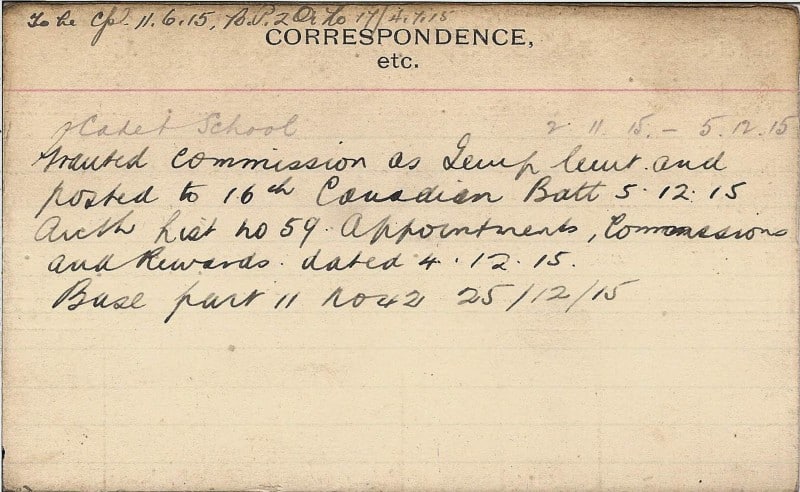 To be Cpl. 11.6.15, B.P.2 Or No 17/4.7.15
CORRESPONDENCE,
etc.
Cadet School 2 11 15. – 5.12.15
Granted Commission as Temp Lieut. and
posted to 16th Canadian Batt 5.12.15
Auth List no 59 Appointments, Commissions
and Rewards. dated 4.12.15.
Base part 11 No 42 25/12/15